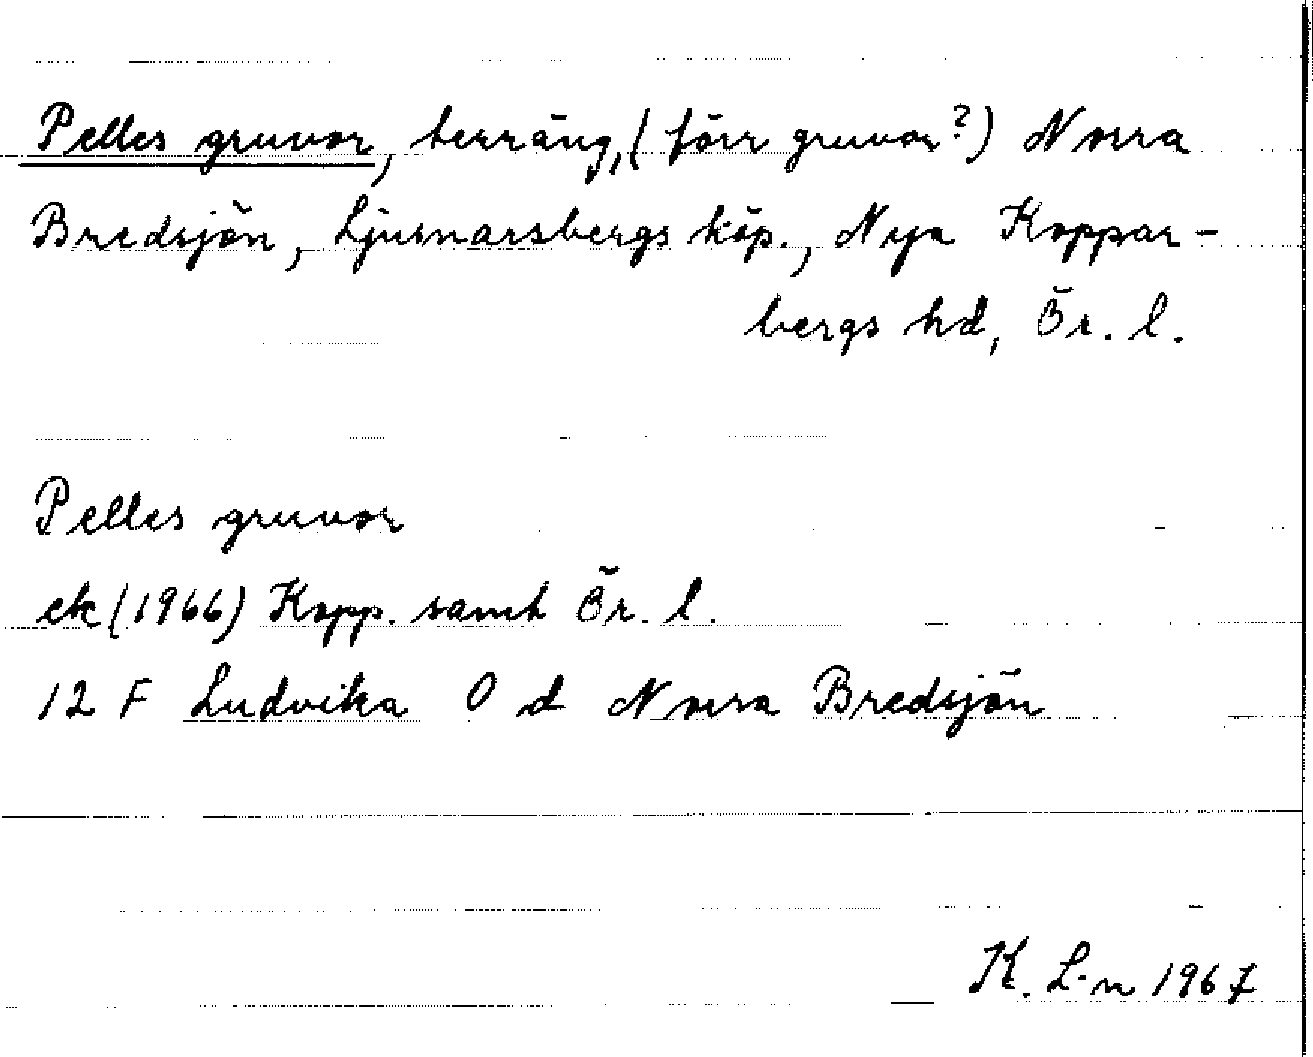 Pelles gruvor, terräng, (förr gruvor?) Norra
Bredsjön, Ljusnarsbergs köp., Nya Koppar-
bergs hd, Ör. l.
Pelles gruvor
ek (1966) Kopp. samt Ör. l.
12 F Ludvika 0 d Norra Bredsjön
K. L-n 1967